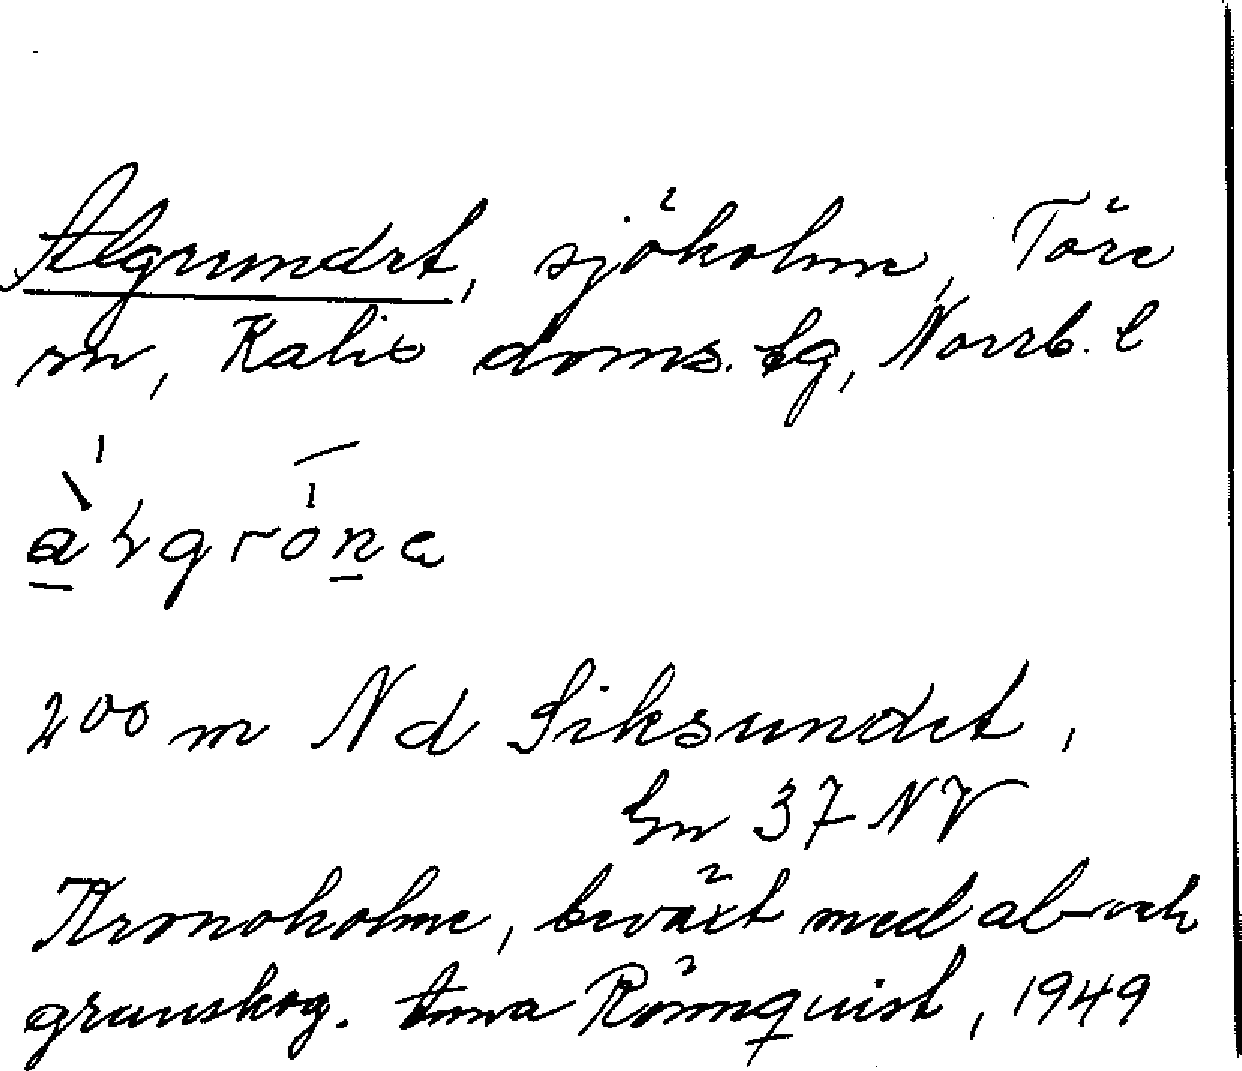 Algrundet, sjöholme, Töre
sn, Kalix doms. lg, Norrb. l
200 m Nd Siksundet,
Gn 37 NV
Kronoholme, beväxt med al- och
granskog. Anna Rönnquist, 1949